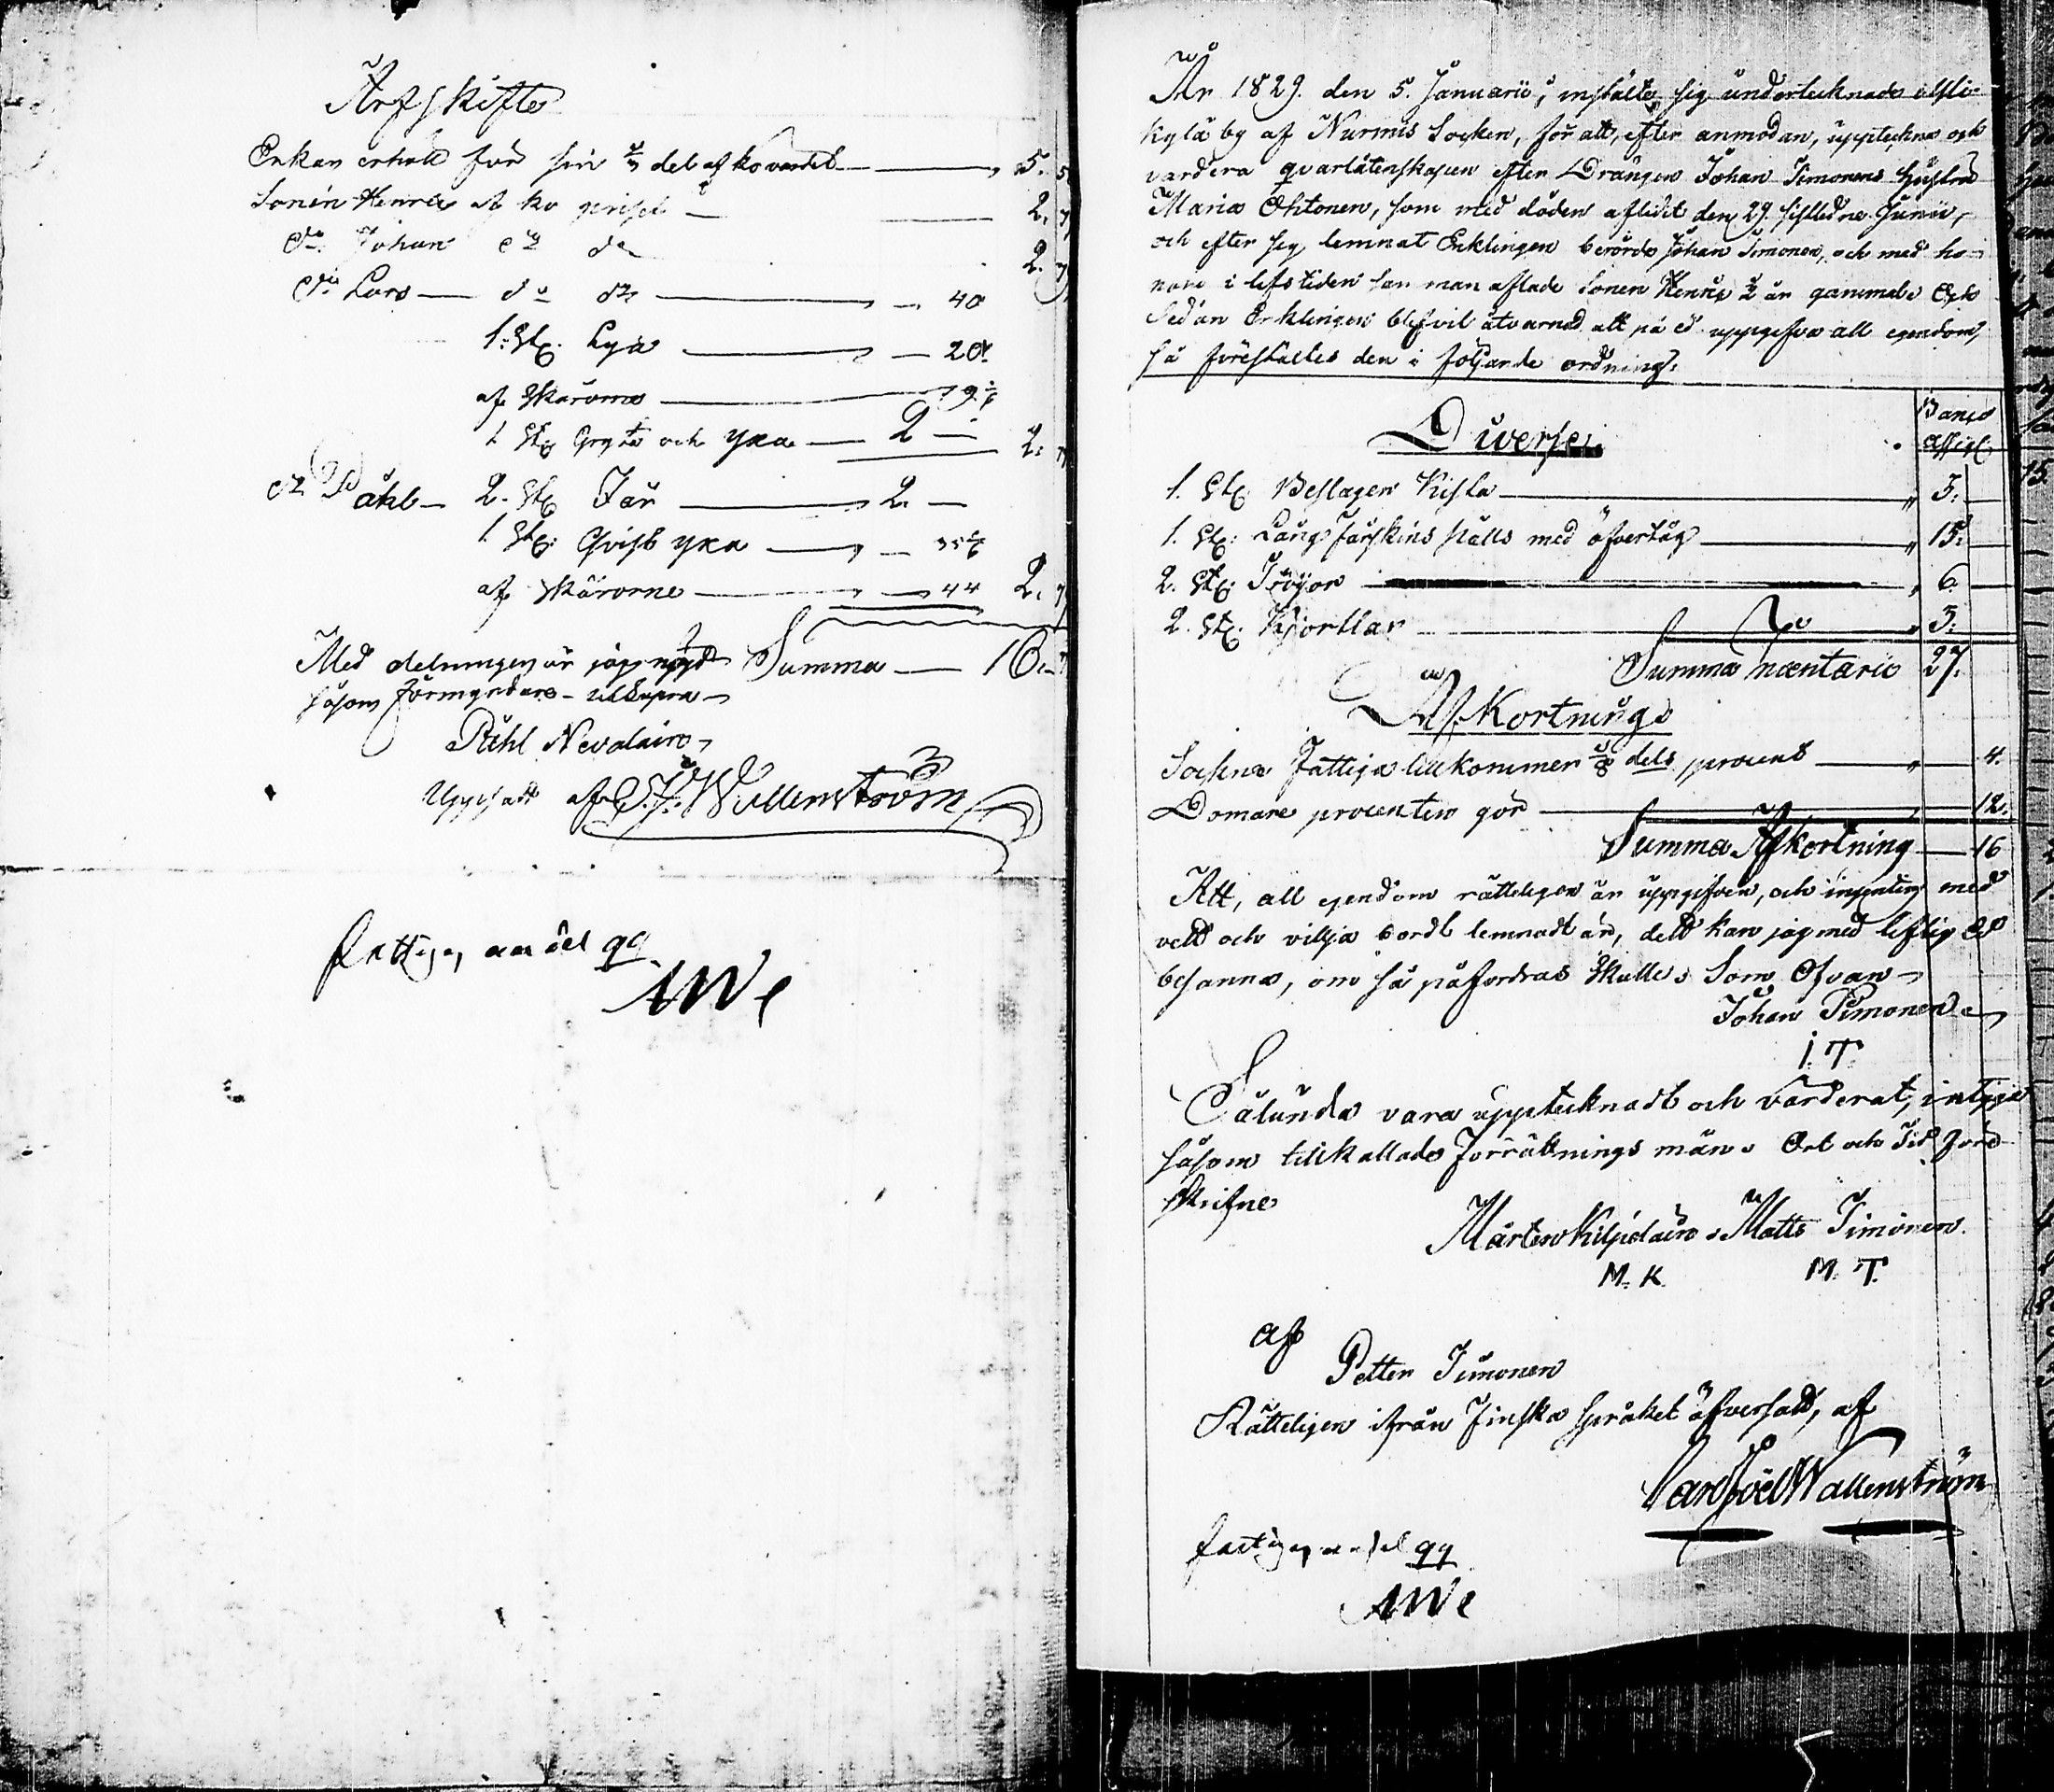 Arfskifte
Enkan erhåll för sin 1/3 del af ko värdet — 5. 5
Sonen Henric af ko priset — 2. 7
do Johan do do 2. 7
do Lars — do do — 40
1. St. Lya — 20
af Skärorne — 9
1 St. Gryta och yxa — 2 — 2. 7
do Påhl — 2. St. Får — 2. —
1 St. Qvist yxa — 35
af Skärorne — 44 2. 7
Med delningen är jag nöjd Summa — 16.
såsom förmyndare — ut Supra
Påhl Nevalain
Uppsatt af C. J. Wallenström
fattig andel qq
AWe
År 1829. den 5. Januarii, instälte sig undertecknade i
kylä by af Nurmis Socken, för att, efter anmodan, uppteckna och
värdera qvarlåtenskapen efter Drängen Johan Timonens hustru
Maria Ohtonen, som med döden aflidit den 29. sistledne Junii,
och efter sig lemnat Enklingen berörde Johan Timonen, och med ho-
nom i lifstiden samman aflade Sonen Henric 1/2 år gammal. Och
Sedan Enklingen blifvit åtvarnad att på ed uppgifva all egendom,
så förestältes den i följande ordning:
Banco
Assig
Diverse
1. St. Beslagen Kista — " 3. —
1. St. Lång Fårskins Pälls med öfvertåg — " 15. —
2. St. Tröijor — " 6. —
2. St. Kjortlar — " 3. —
Summa Inventarie 27.
Afkortning
Sockne Fattiga tillkommer 1/8 dels procent — " — 4.
Domare procenten gör — 12.
Summa Afkortning — 16
Att, all egendom rätteligen är uppgifven, och ingenting med
vett och vilja bordt lemnadt är, dett kan jag med liflig Ed
besanna, om så påfordras Skulle. Som Ofvan
Johan Timonen
I. T.
Sålunda vara upptecknadt och värderat, intyga
såsom tillkallade Förrättnings män. Ort och Tid för
skrifne
Mårten Kilpelain Matts Timonen.
M. K. M. T.
af
Petter Timonen
Rätteligen ifrån Finska språket öfversatt, af
Carl Joel Wallenström
fattig andel qq
AWe